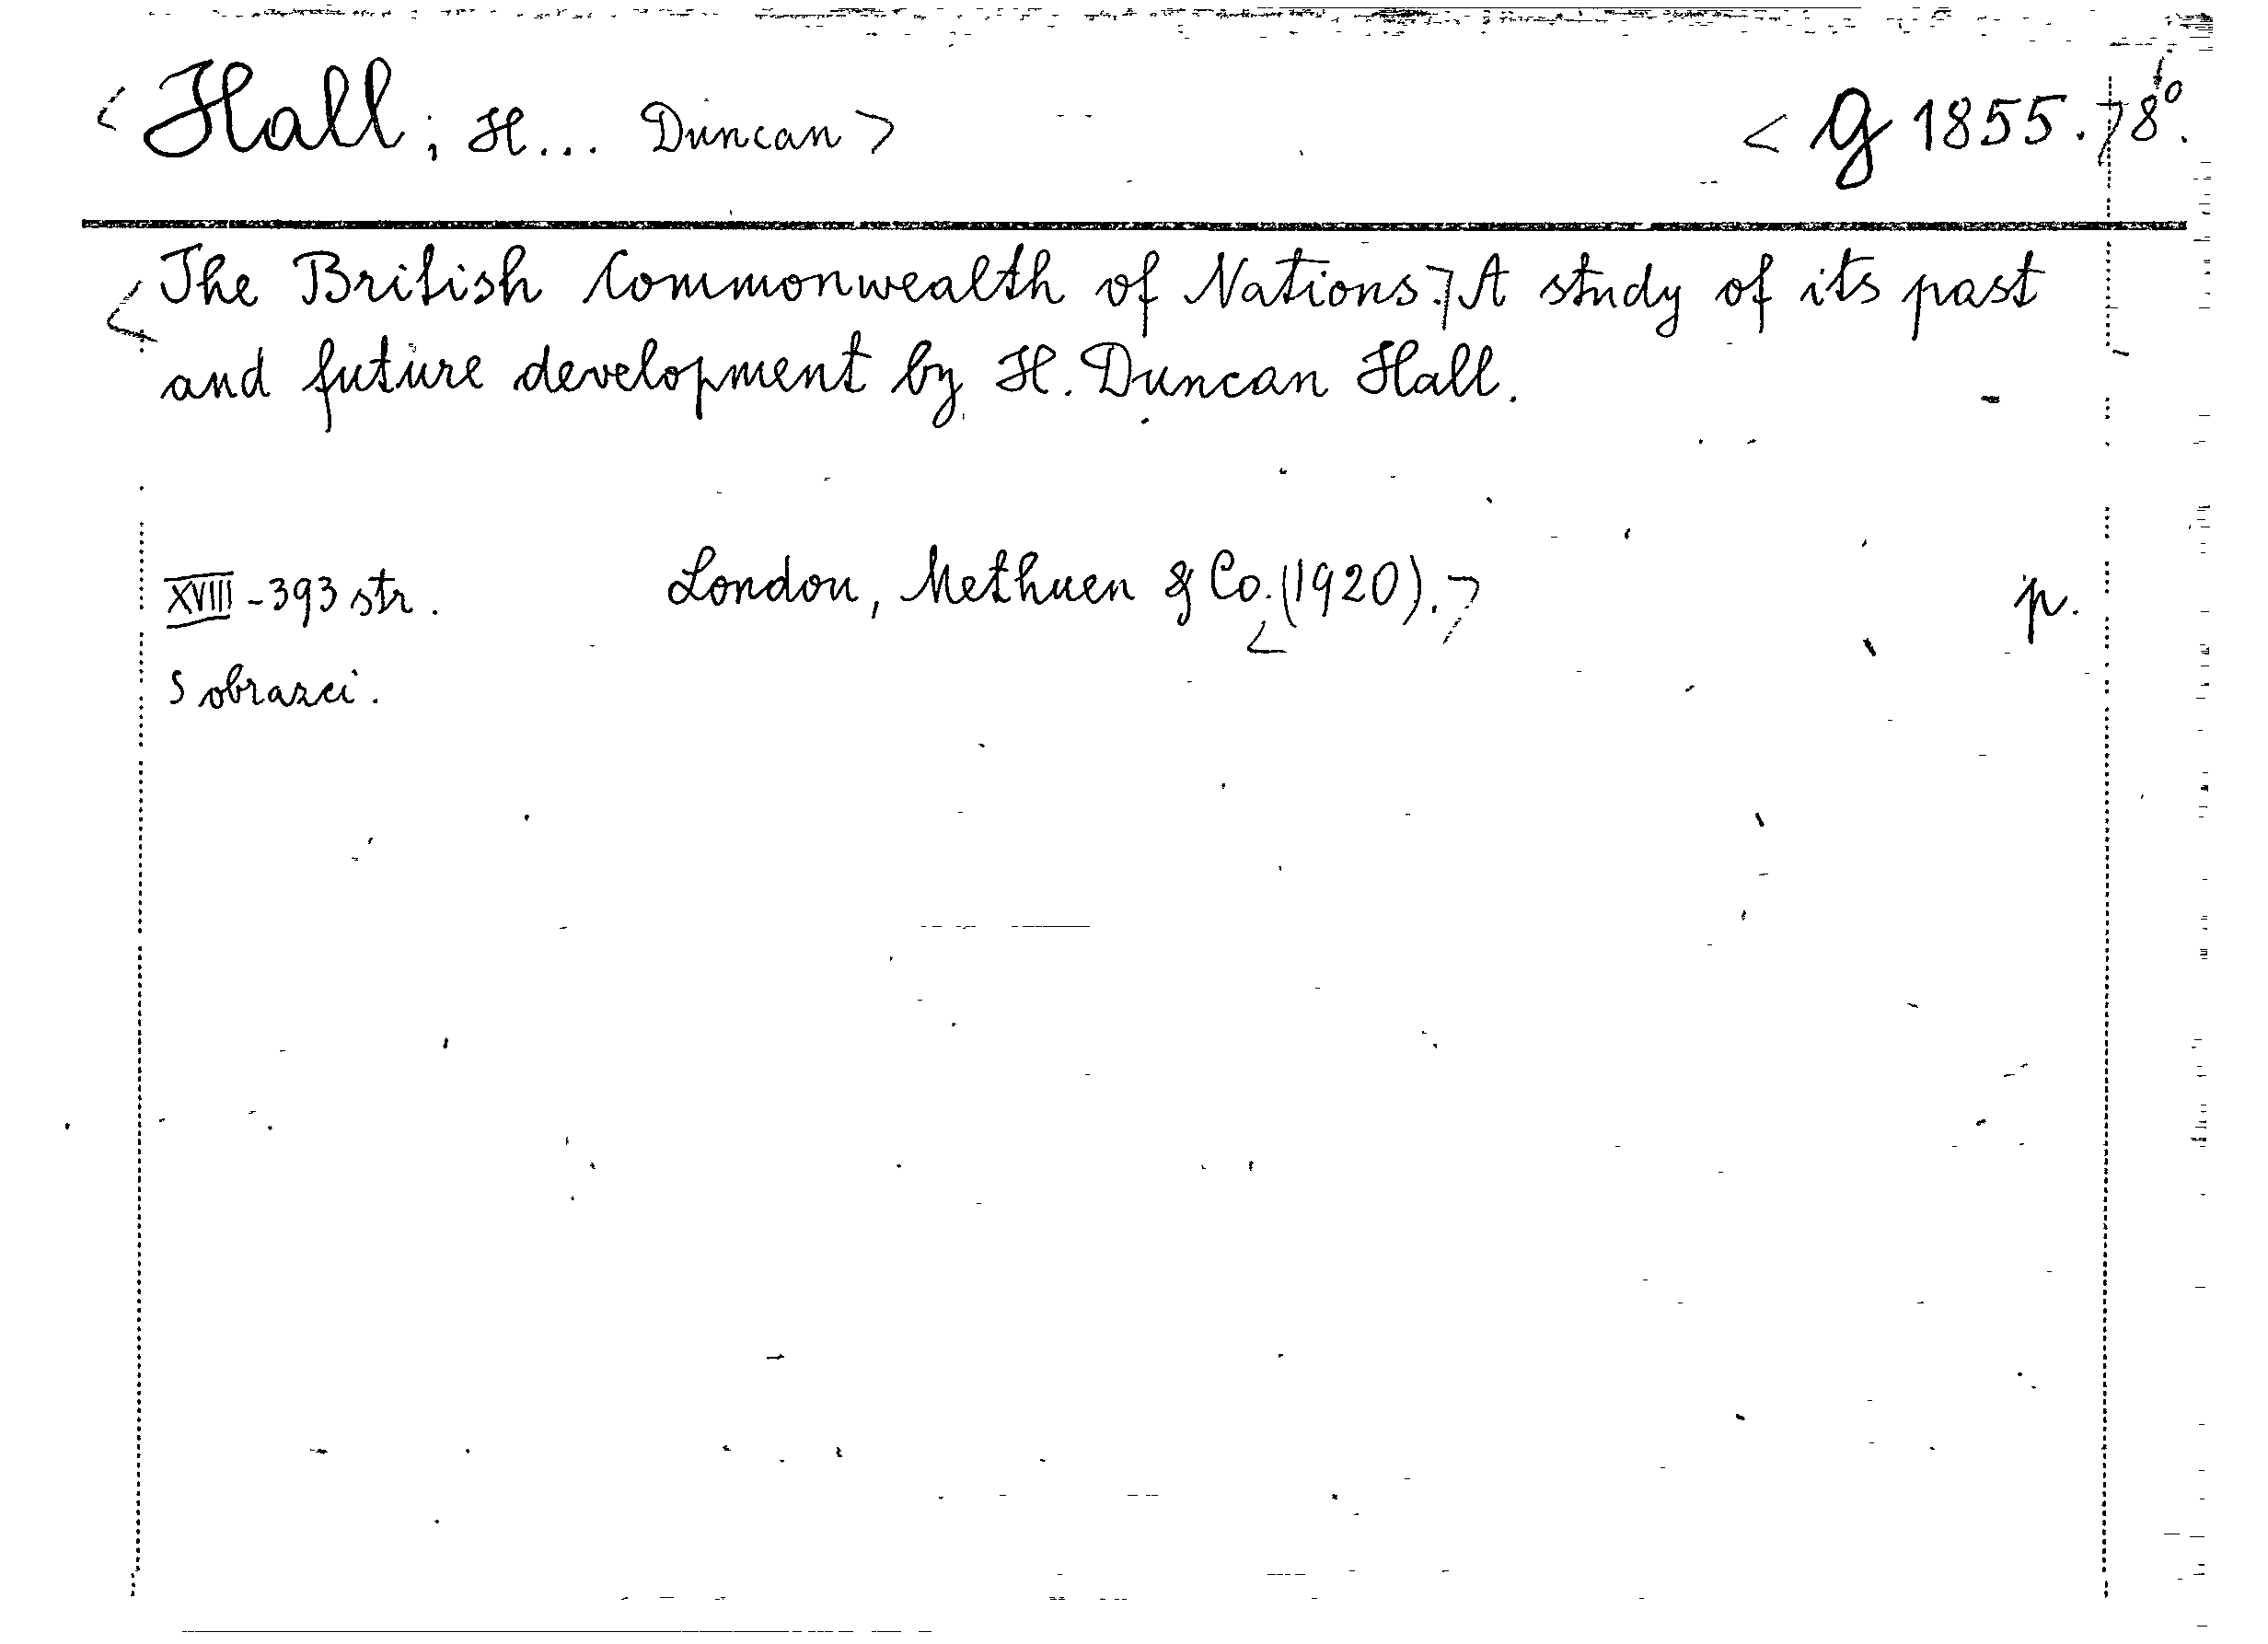 <Hall, H... Duncan> <g 1855.>8°.
<The British Commonwealth of Nations.>A study of its past
and future development by H. Duncan Hall.
XVIII-393 str. London, Methuen & Co.<(1920).> p.
S obrazci.